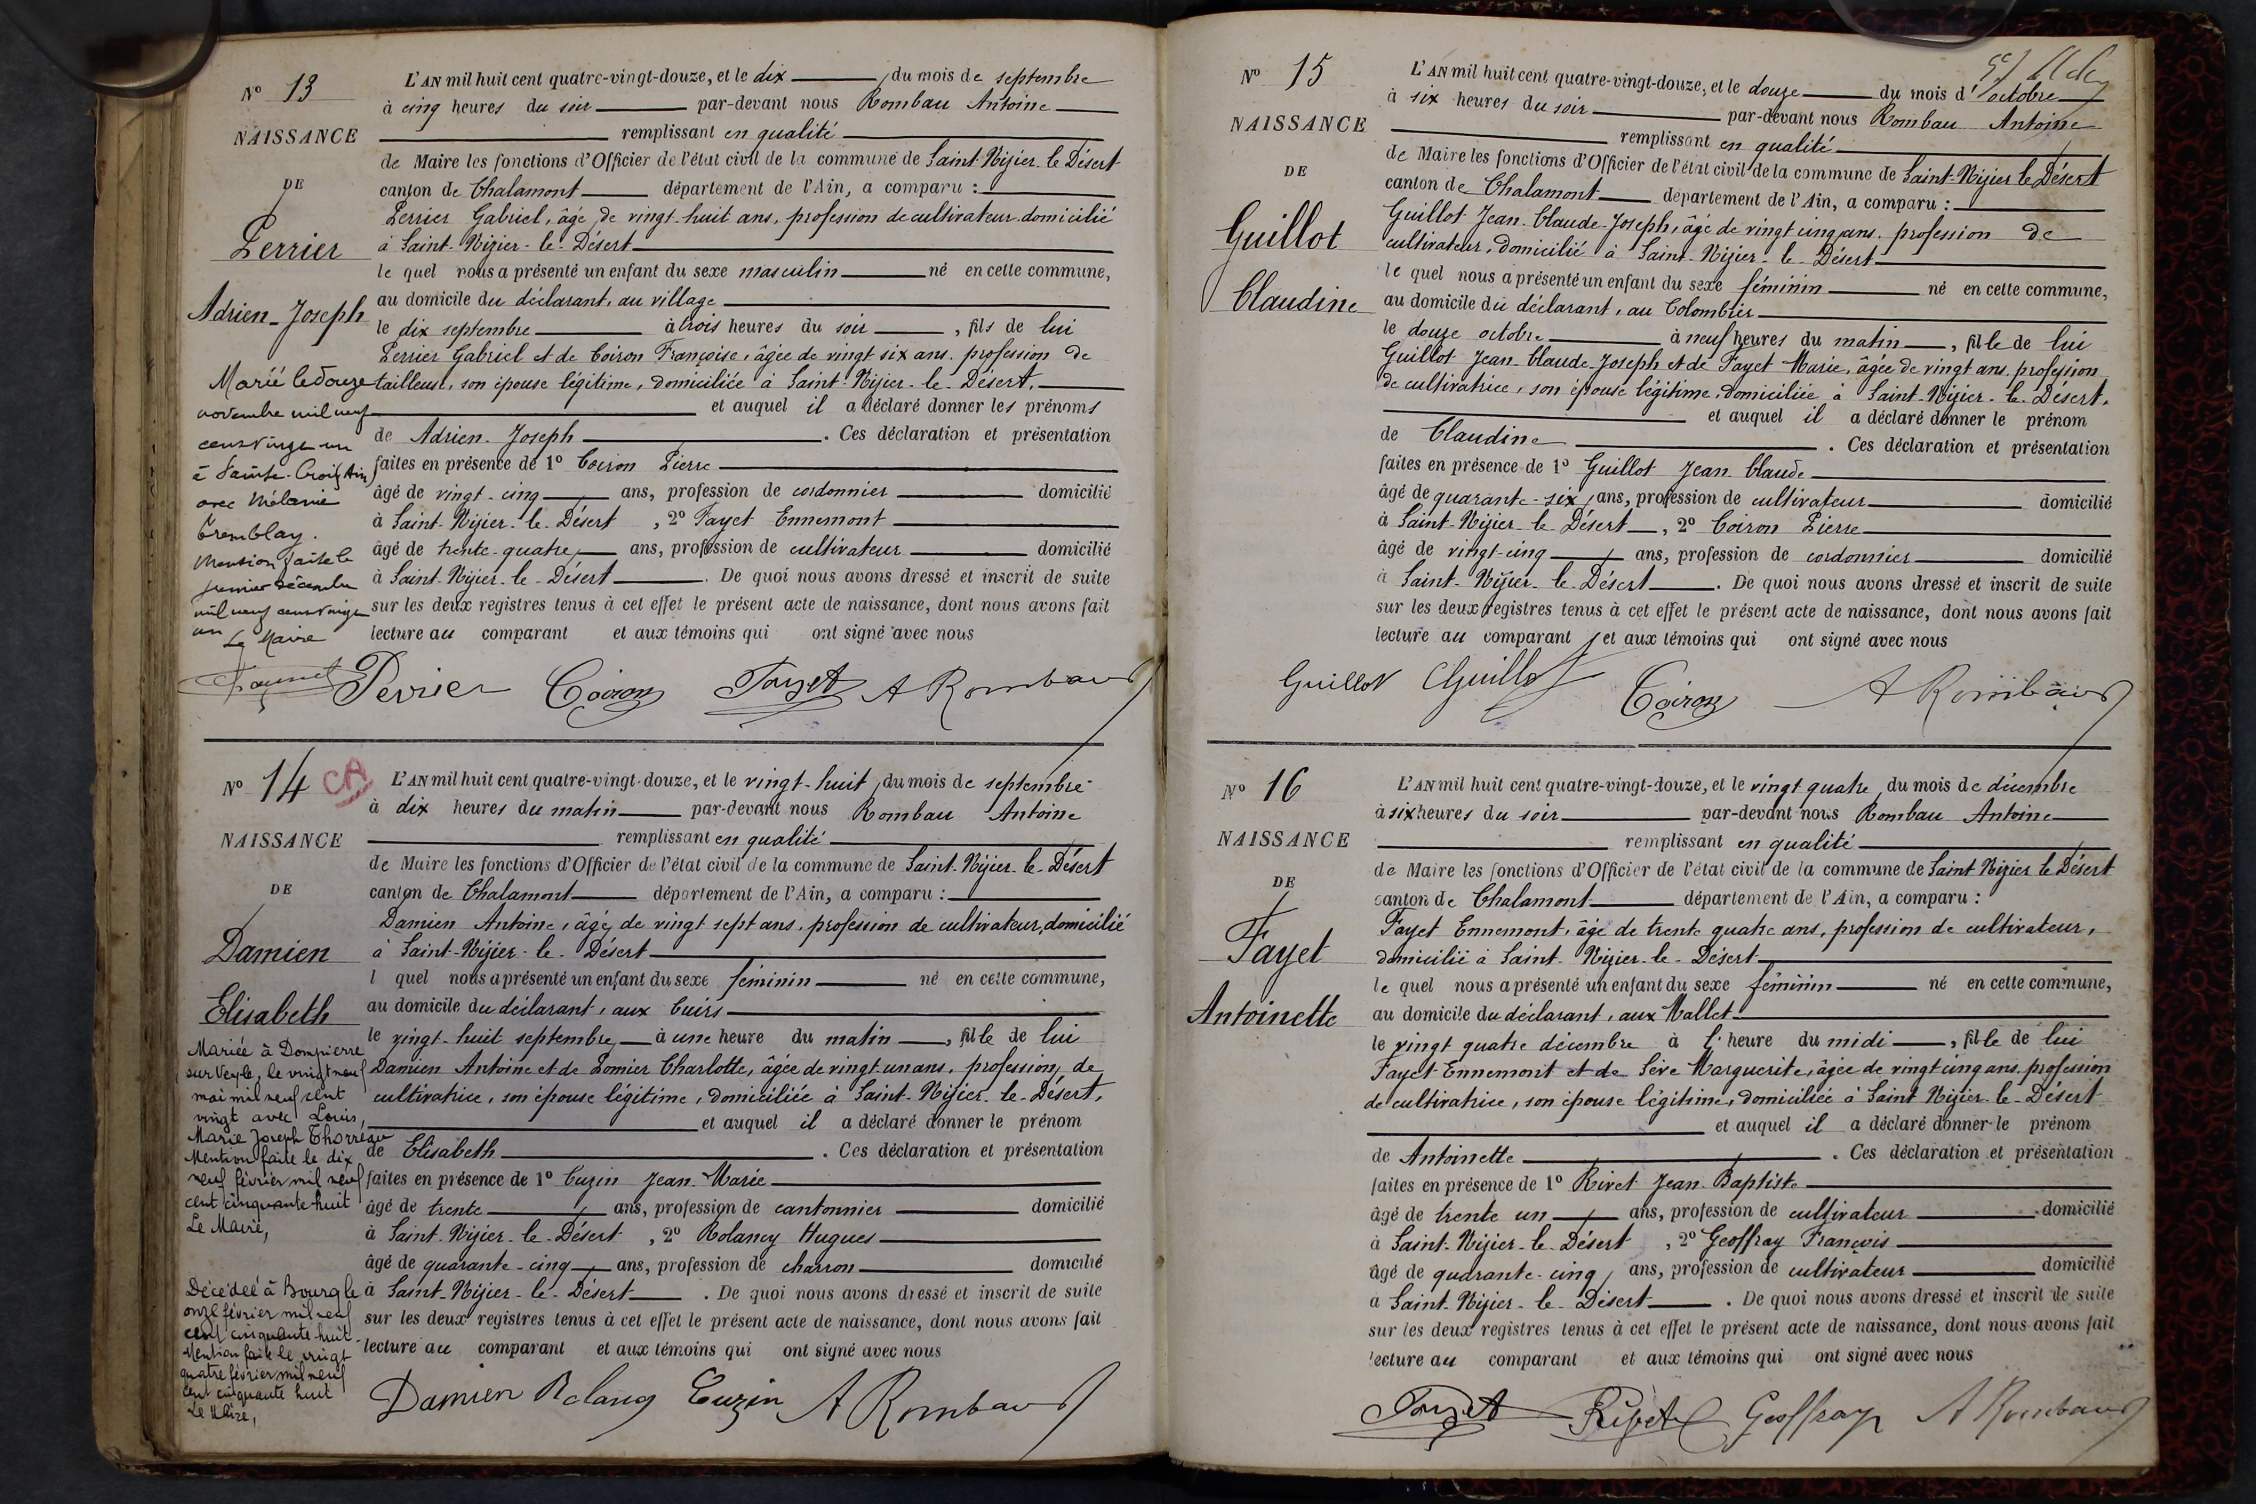 N° 13
NAISSANCE
DE
Perrier
Adrien-Joseph
L'AN mil huit cent quatre-vingt-douze, et le dix du mois de septembre
à cinq heures du soir par-devant nous Rombau Antoine
remplissant en qualité
de Maire les fonctions d'Officier de l'état civil de la commune de Saint-Nizier-le-Désert
canton de Chalamont département de l'Ain, a comparu :
Perrier Gabriel, âgé de vingt-huit ans, profession de cultivateur domicilié
à Saint-Nizier-le-Désert
le quel nous a présenté un enfant du sexe masculin né en cette commune,
au domicile du déclarant, au village
le dix septembre à trois heures du soir, fils de lui
Perrier Gabriel et de Coiron Françoise, âgée de vingt six ans, profession de
tailleuse, son épouse légitime, domiciliée à Saint-Nizier-le-Désert,
et auquel il a déclaré donner les prénoms
de Adrien-Joseph. Ces déclaration et présentation
faites en présence de 1° Coiron Pierre
âgé de vingt-cinq ans, profession de cordonnier domicilié
à Saint-Nizier-le-Désert, 2° Fayet Ennemont
âgé de trente-quatre ans, profession de cultivateur domicilié
à Saint-Nizier-le-Désert. De quoi nous avons dressé et inscrit de suite
sur les deux registres tenus à cet effet le présent acte de naissance, dont nous avons fait
lecture au comparant et aux témoins qui ont signé avec nous
Marié le douze
novembre mil neuf
cent vingt un
à Sainte-Croix (Ain)
avec Mélanie
Tremblay.
Mention faite le
premier décembre
mil neuf cent vingt
un Le Maire
Perrier Coiron Fayet A Rombau
N° 14 CA
NAISSANCE
DE
Damien
Elisabeth
L'AN mil huit cent quatre-vingt-douze, et le vingt-huit du mois de septembre
à dix heures du matin par-devant nous Rombau Antoine
remplissant en qualité
de Maire les fonctions d'Officier de l'état civil de la commune de Saint-Nizier-le-Désert
canton de Chalamont département de l'Ain, a comparu :
Damien Antoine, âgé de vingt sept ans, profession de cultivateur, domicilié
à Saint-Nizier-le-Désert
l quel nous a présenté un enfant du sexe féminin né en cette commune,
au domicile du déclarant, aux Cuirs
le vingt-huit septembre à une heure du matin, fille de lui
Damien Antoine et de Pomier Charlotte, âgée de vingt un ans, profession de
cultivatrice, son épouse légitime, domiciliée à Saint-Nizier-le-Désert,
et auquel il a déclaré donner le prénom
de Elisabeth. Ces déclaration et présentation
faites en présence de 1° Cuzin Jean-Marie
âgé de trente ans, profession de cantonnier domicilié
à Saint-Nizier-le-Désert, 2° Rolancy Hugues
âgé de quarante-cinq ans, profession de charron domicilié
à Saint-Nizier-le-Désert. De quoi nous avons dressé et inscrit de suite
sur les deux registres tenus à cet effet le présent acte de naissance, dont nous avons fait
lecture au comparant et aux témoins qui ont signé avec nous
Mariée à Dompierre
sur Veyle, le vingt neuf
mai mil neuf cent
vingt avec Louis,
Marie Joseph Thorreau
Mention faite le dix
neuf février mil neuf
cent cinquante-huit
Le Maire,
Décédée à Bourg le
onze février mil neuf
cent cinquante-huit.
Mention faite le vingt
quatre février mil neuf
cent cinquante huit
Le Maire,
Damien Rolancy Cuzin A Rombau
N° 15
NAISSANCE
DE
Guillot
Claudine
L'AN mil huit cent quatre-vingt-douze, et le douze du mois d'octobre
à six heures du soir par-devant nous Rombau Antoine
remplissant en qualité
de Maire les fonctions d'Officier de l'état civil de la commune de Saint-Nizier le Désert
canton de Chalamont département de l'Ain, a comparu :
Guillot Jean-Claude-Joseph, âgé de vingt cinq ans, profession de
cultivateur, domicilié à Saint-Nizier-le-Désert
le quel nous a présenté un enfant du sexe féminin né en cette commune,
au domicile du déclarant, au Colombier
le douze octobre à neuf heures du matin, fille de lui
Guillot Jean-Claude-Joseph et de Fayet Marie, âgée de vingt ans, profession
de cultivatrice, son épouse légitime, domiciliée à Saint-Nizier-le-Désert,
et auquel il a déclaré donner le prénom
de Claudine. Ces déclaration et présentation
faites en présence de 1° Guillot Jean-Claude
âgé de quarante-six ans, profession de cultivateur domicilié
à Saint-Nizier-le-Désert, 2° Coiron Pierre
âgé de vingt-cinq ans, profession de cordonnier domicilié
à Saint-Nizier-le-Désert. De quoi nous avons dressé et inscrit de suite
sur les deux registres tenus à cet effet le présent acte de naissance, dont nous avons fait
lecture au comparant et aux témoins qui ont signé avec nous
Guillot CGuillot Coiron A Rombau
N° 16
NAISSANCE
DE
Fayet
Antoinette
L'AN mil huit cent quatre-vingt-douze, et le vingt quatre du mois de décembre
à six heures du soir par-devant nous Rombau Antoine
remplissant en qualité
de Maire les fonctions d'Officier de l'état civil de la commune de Saint Nizier le Désert
canton de Chalamont département de l'Ain, a comparu :
Fayet Ennemont, âgé de trente quatre ans, profession de cultivateur,
domicilié à Saint-Nizier-le-Désert
le quel nous a présenté un enfant du sexe féminin né en cette commune,
au domicile du déclarant, aux Mallet
le vingt quatre décembre à l' heure du midi, fille de lui
Fayet Ennemont et de Sève Marguerite, âgée de vingt cinq ans, profession
de cultivatrice, son épouse légitime, domiciliée à Saint Nizier-le-Désert
et auquel il a déclaré donner le prénom
de Antoinette. Ces déclaration et présentation
faites en présence de 1° Rivet Jean-Baptiste
âgé de trente un ans, profession de cultivateur domicilié
à Saint-Nizier-le-Désert, 2° Geoffray François
âgé de quarante-cinq ans, profession de cultivateur domicilié
à Saint-Nizier-le-Désert. De quoi nous avons dressé et inscrit de suite
sur les deux registres tenus à cet effet le présent acte de naissance, dont nous avons fait
lecture au comparant et aux témoins qui ont signé avec nous
Fayet Rivet Geoffray A Rombau